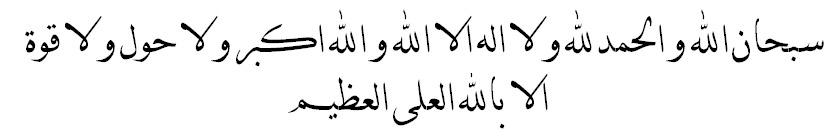 سبحان الله والحمد لله ولا اله الا الله والله اكبر ولا حول ولا قوة
الا بالله العلى العظيم